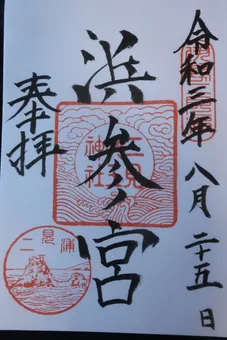 令和三年 八月 二十五日
浜参ノ宮
奉拝
二見
神社
二見浦